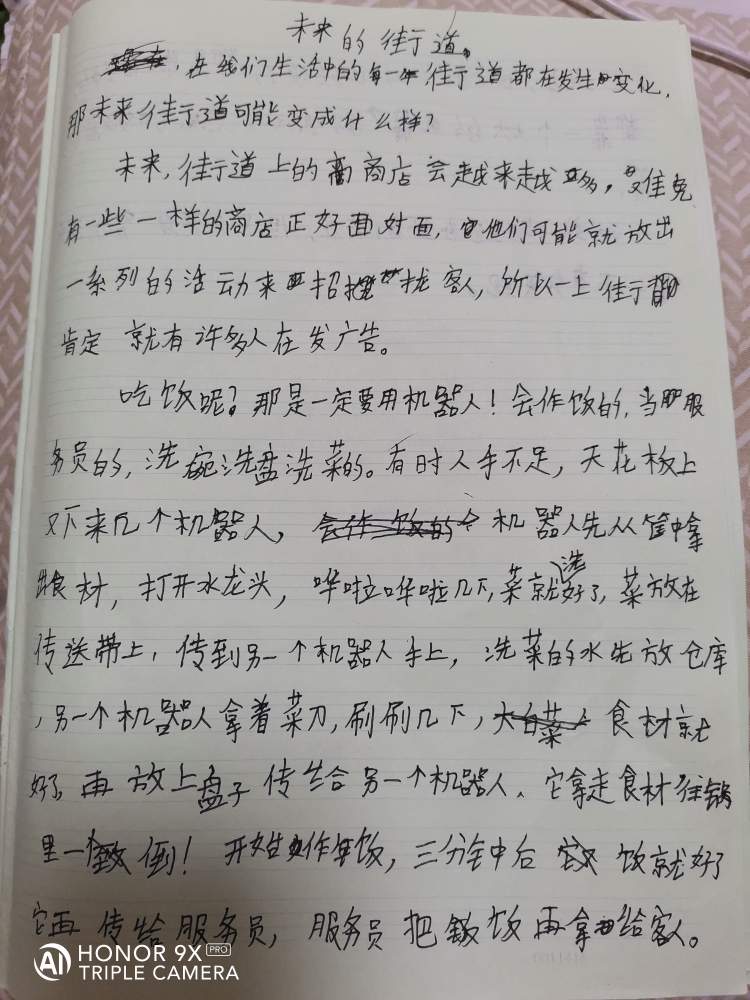 未来的街道。
在我们生活中的每一个街道都在发生变化，
那未来街道可能变成什么样？
未来，街道上的商店会越来越多，难免
有一些一样的商店正好面对面，他们可能就放出
一系列的活动来招拢客人，所以一上街
肯定就有许多人在发广告。
吃饭呢？那是一定要用机器人！会作饭的，当服
务员的，洗碗洗盘洗菜的。有时人手不足，天花板上
又下来几个机器人，机器人先从筐中拿
出食材，打开水龙头，哗啦哗啦几下，菜就洗好了，菜放在
传送带上，传到另一个机器人手上，洗菜的水先放仓库
，另一个机器人拿着菜刀，刷刷几下，食材就
好了，再放上盘子传给另一个机器人，它拿走食材往锅
里一倒！开始作饭，三分钟后饭就好了
它再传给服务员，服务员把饭再拿给客人。
HONOR 9X PRO
TRIPLE CAMERA